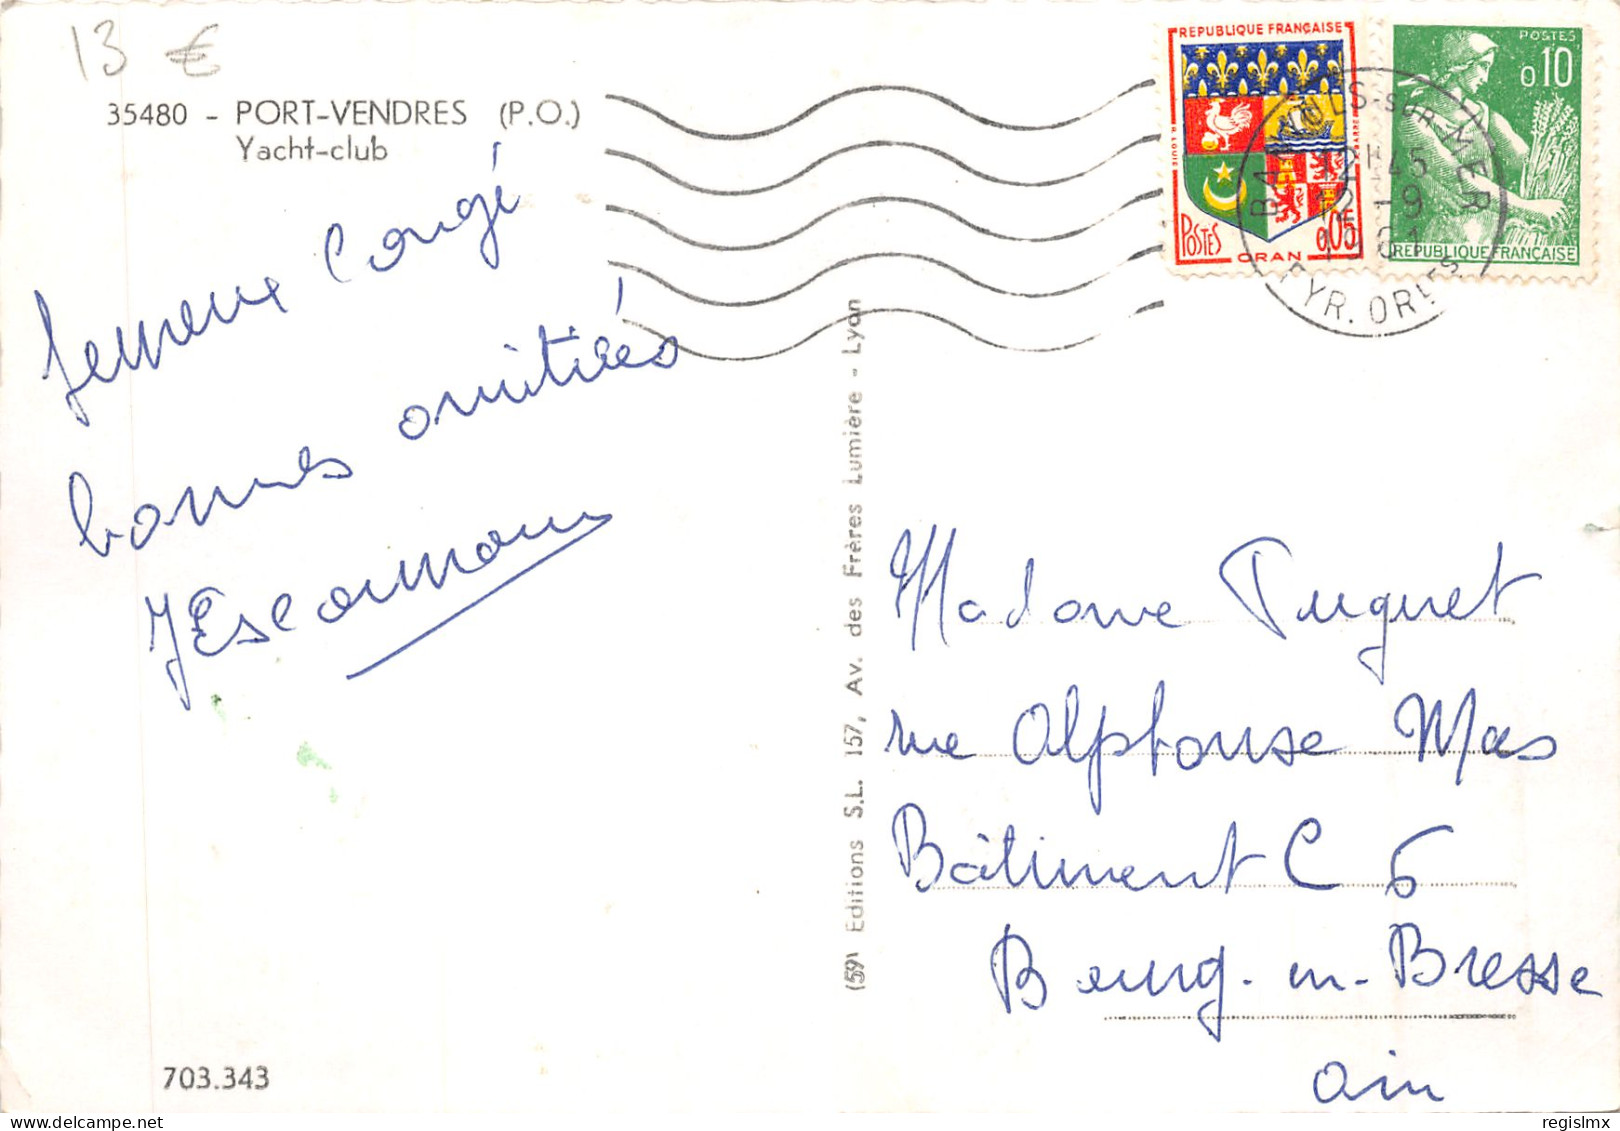 13 €
35480 - PORT-VENDRES (P.O.)
Yacht-club
REPUBLIQUE FRANÇAISE
POSTES
0,05
ORAN
POSTES
0,10
REPUBLIQUE FRANÇAISE
BANYULS-SUR-MER
12H45
12-9
1961
PYR. ORles
heureux Congé
bonnes amitiés
JEscarmain
(59) Editions S.L. 157, Av. des Frères Lumière - Lyon
Madame Puguet
rue Alphonse Mas
Bâtiment C 6
Bourg-en-Bresse
Ain
703.343
regislmx